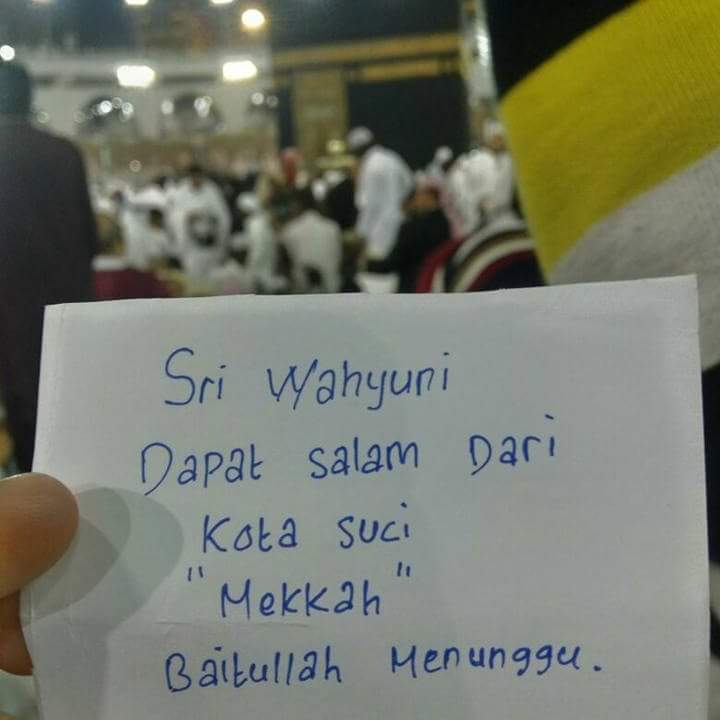 Sri Wahyuni
Dapat salam Dari
Kota suci
"Mekkah"
Baitullah Menunggu.